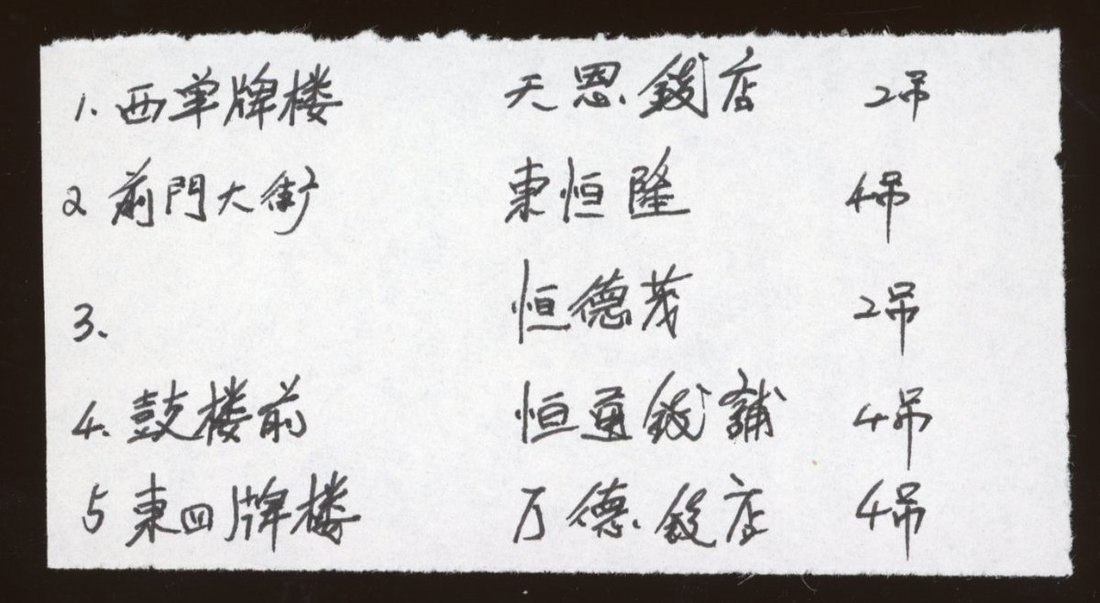 1. 西单牌楼 天恩錢店 2吊
2 前門大街 東恒隆 4吊
3. 恒德茂 2吊
4. 鼓楼前 恒勇錢舖 4吊
5 東四牌楼 万德錢店 4吊